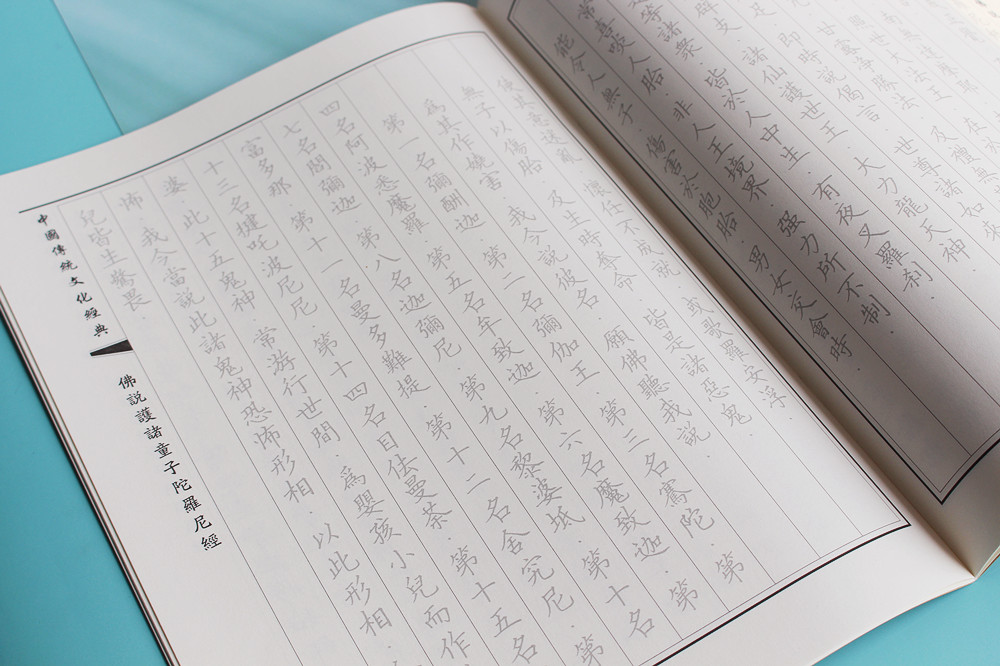 南無達摩耶
世大法王.在
甘露淨勝法.及禮無
足.即時說偈言.世尊諸如
辟支.諸仙護世王.大力龍天神
等諸衆.皆於人中生.有夜叉羅刹.
常喜噉人胎.非人王境界.強力所不制.
能令人無子.傷害於胞胎.男女交會時
使其意迷亂.懷妊不成就.或歌羅安浮
無子以傷胎.及生時奪命.皆是諸惡鬼
爲其作嬈害.我今說彼名.願佛聽我說
第一名彌酬迦.第二名彌伽王.第三名騫陀.第
四名阿波悉魔羅.第五名牟致迦.第六名魔致迦.第
七名閻彌迦.第八名迦彌尼.第九名黎婆坻.第十名
富多那.第十一名曼多難提.第十二名舍究尼.第
十三名揵吒波尼尼.第十四名目佉曼荼.第十五名
婆.此十五鬼神.常游行世間.爲嬰孩小兒而作
怖.我今當說此諸鬼神恐怖形相.以此形相.
兒皆生驚畏.
中國傳統文化經典
佛説護諸童子陀羅尼經